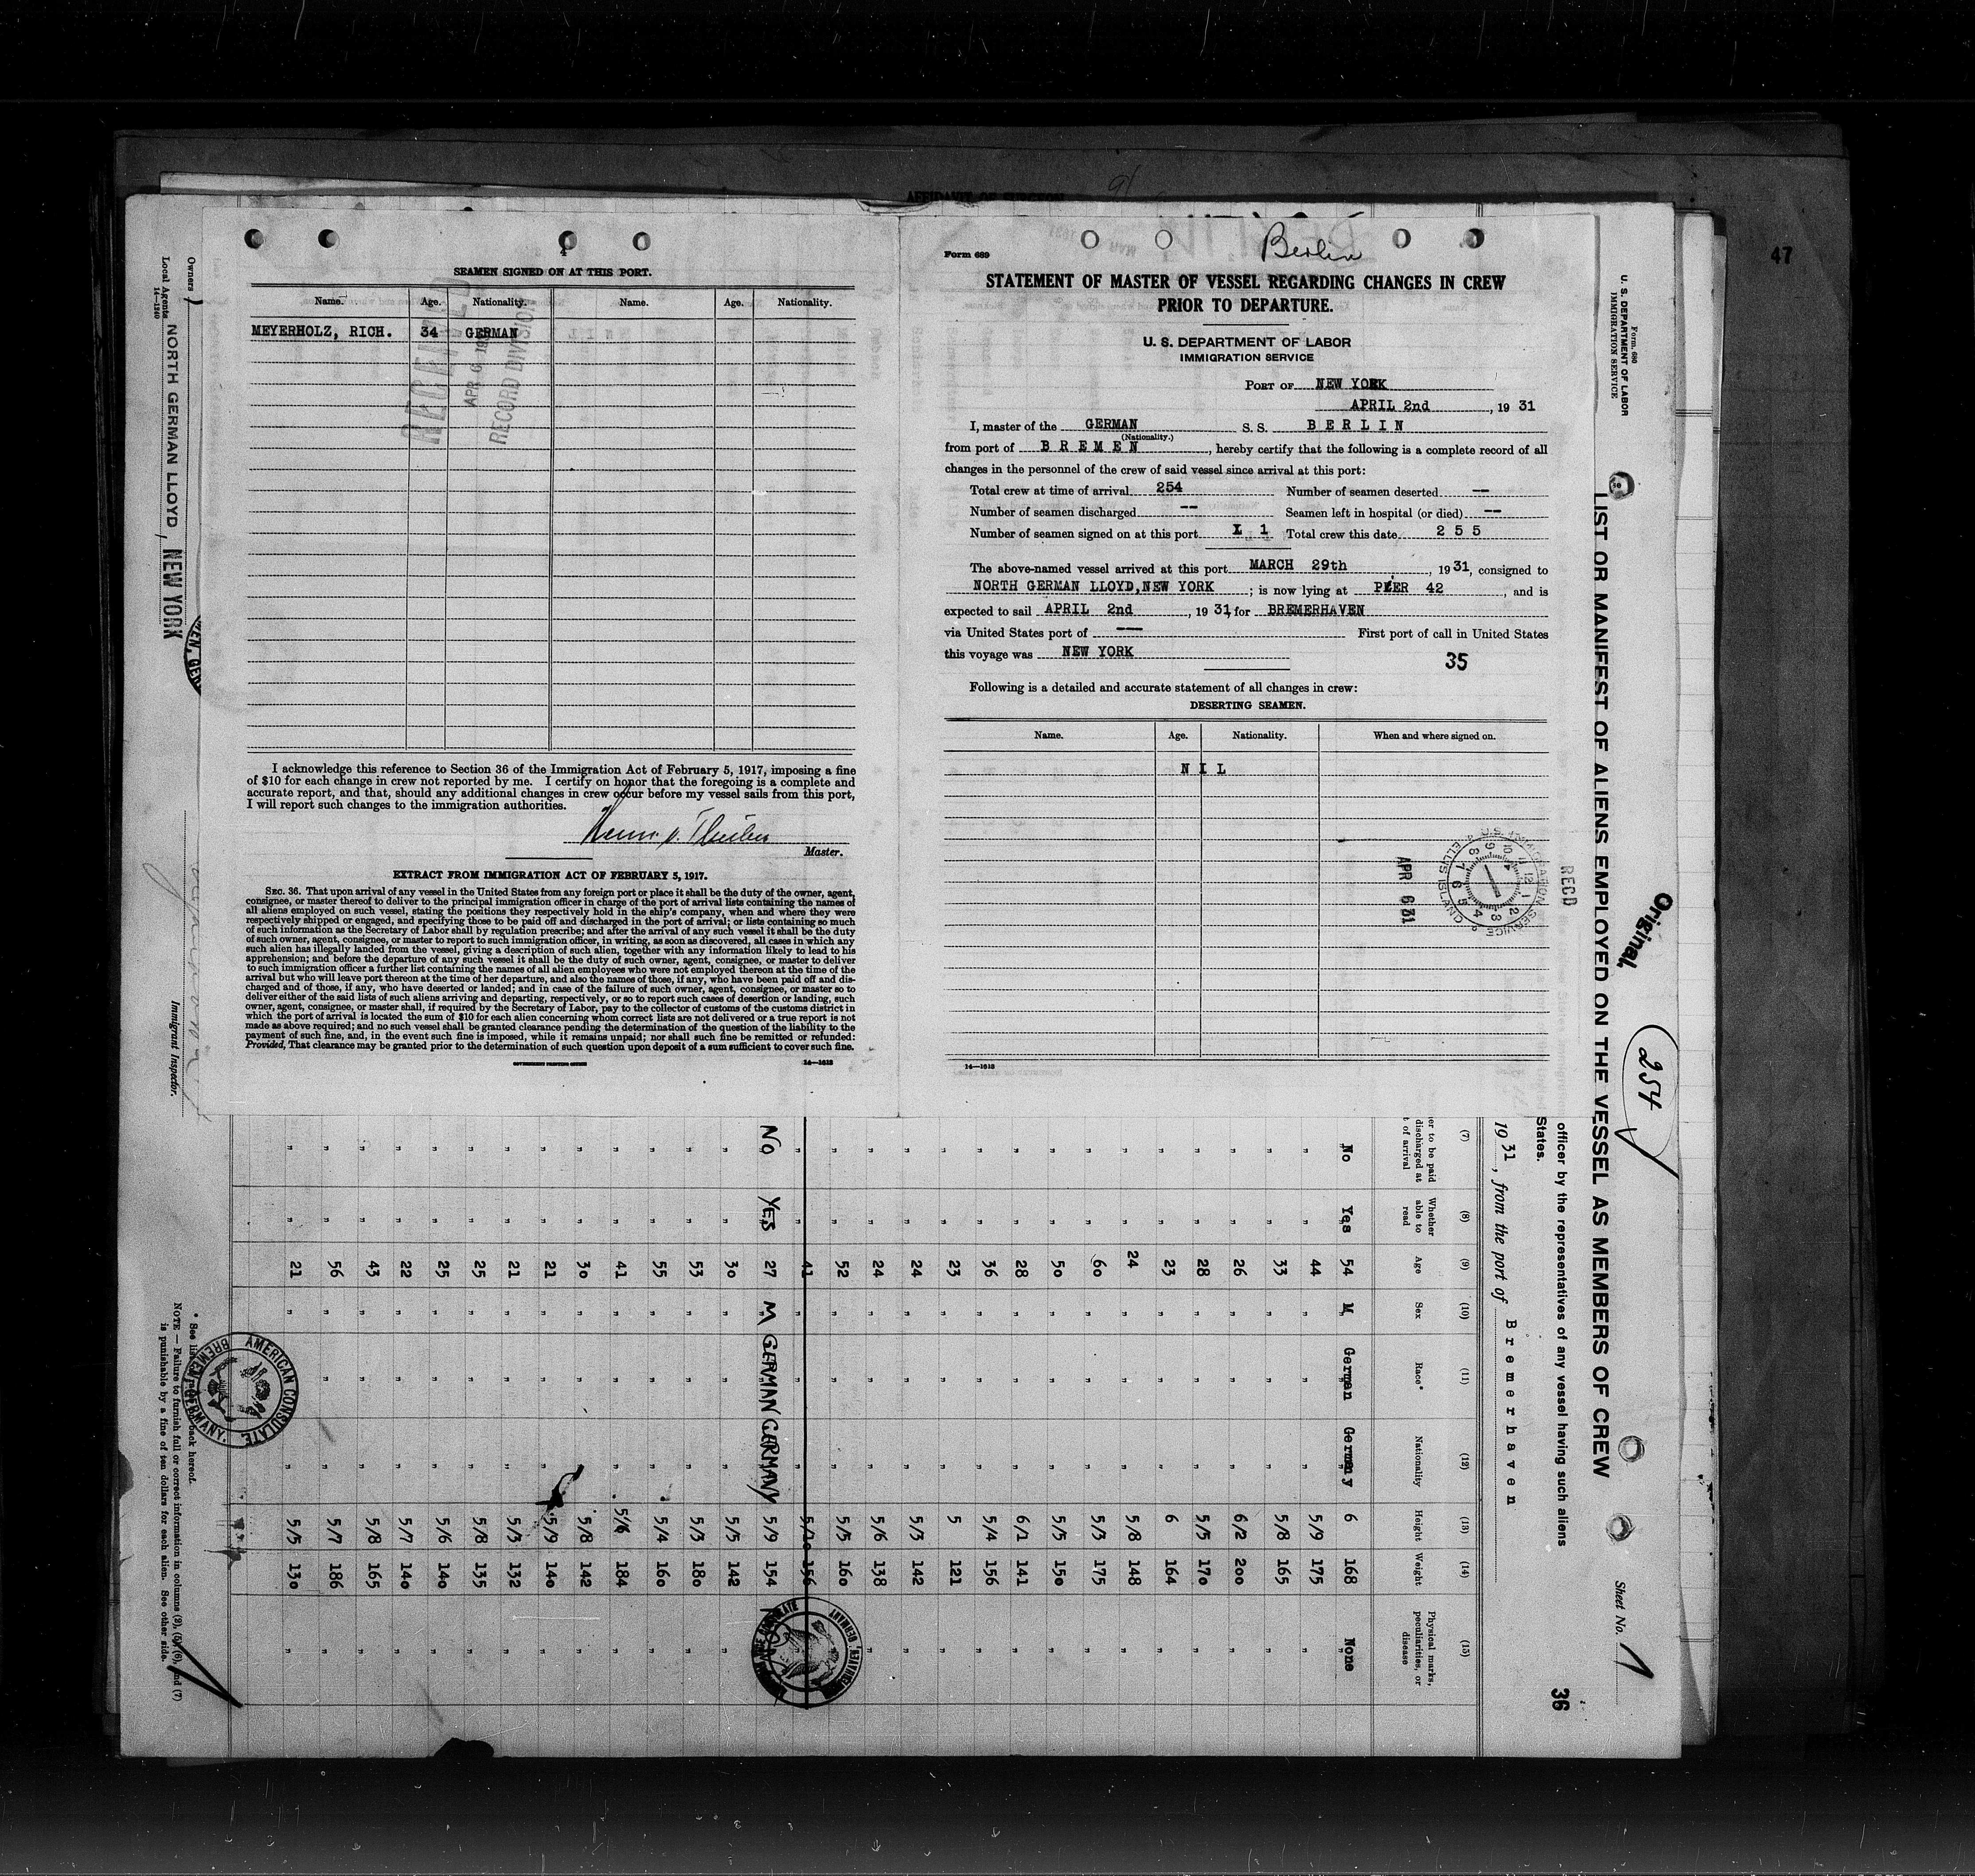 47
Form 689
Berlin
STATEMENT OF MASTER OF VESSEL REGARDING CHANGES IN CREW
PRIOR TO DEPARTURE.
U. S. DEPARTMENT OF LABOR
IMMIGRATION SERVICE
PORT OF NEW YORK
APRIL 2nd, 19 31
I, master of the GERMAN S. S. BERLIN
(Nationality.)
from port of BREMEN, hereby certify that the following is a complete record of all
changes in the personnel of the crew of said vessel since arrival at this port:
Total crew at time of arrival 254 Number of seamen deserted --
Number of seamen discharged -- Seamen left in hospital (or died) --
Number of seamen signed on at this port 1 Total crew this date 255
The above-named vessel arrived at this port MARCH 29th, 19 31, consigned to
NORTH GERMAN LLOYD, NEW YORK; is now lying at PIER 42, and is
expected to sail APRIL 2nd, 19 31, for BREMERHAVEN
via United States port of --- First port of call in United States
this voyage was NEW YORK
35
Following is a detailed and accurate statement of all changes in crew:
DESERTING SEAMEN.
Name. Age. Nationality. When and where signed on.
NIL
REC'D
U.S. IMMIGRATION SERVICE
ELLIS ISLAND
APR 6 31
14—1613
4
SEAMEN SIGNED ON AT THIS PORT.
Name. Age. Nationality. Name. Age. Nationality.
MEYERHOLZ, RICH. 34 GERMAN
RECEIVED
APR 6 1931
RECORD DIVISION
I acknowledge this reference to Section 36 of the Immigration Act of February 5, 1917, imposing a fine
of $10 for each change in crew not reported by me. I certify on honor that the foregoing is a complete and
accurate report, and that, should any additional changes in crew occur before my vessel sails from this port,
I will report such changes to the immigration authorities.
Master.
EXTRACT FROM IMMIGRATION ACT OF FEBRUARY 5, 1917.
SEC. 36. That upon arrival of any vessel in the United States from any foreign port or place it shall be the duty of the owner, agent,
consignee, or master thereof to deliver to the principal immigration officer in charge of the port of arrival lists containing the names of
all aliens employed on such vessel, stating the positions they respectively hold in the ship's company, when and where they were
respectively shipped or engaged, and specifying those to be paid off and discharged in the port of arrival; or lists containing so much
of such information as the Secretary of Labor shall by regulation prescribe; and after the arrival of any such vessel it shall be the duty
of such owner, agent, consignee, or master to report to such immigration officer, in writing, as soon as discovered, all cases in which any
such alien has illegally landed from the vessel, giving a description of such alien, together with any information likely to lead to his
apprehension; and before the departure of any such vessel it shall be the duty of such owner, agent, consignee, or master to deliver
to such immigration officer a further list containing the names of all alien employees who were not employed thereon at the time of the
arrival but who will leave port thereon at the time of her departure, and also the names of those, if any, who have been paid off and dis-
charged and of those, if any, who have deserted or landed; and in case of the failure of such owner, agent, consignee, or master so to
deliver either of the said lists of such aliens arriving and departing, respectively, or so to report such cases of desertion or landing, such
owner, agent, consignee, or master shall, if required by the Secretary of Labor, pay to the collector of customs of the customs district in
which the port of arrival is located the sum of $10 for each alien concerning whom correct lists are not delivered or a true report is not
made as above required; and no such vessel shall be granted clearance pending the determination of the question of the liability to the
payment of such fine, and, in the event such fine is imposed, while it remains unpaid; nor shall such fine be remitted or refunded:
Provided, That clearance may be granted prior to the determination of such question upon deposit of a sum sufficient to cover such fine.
GOVERNMENT PRINTING OFFICE
14—1613
Form 680
U. S. DEPARTMENT OF LABOR
IMMIGRATION SERVICE
Original.
254
Sheet No. 1
LIST OR MANIFEST OF ALIENS EMPLOYED ON THE VESSEL AS MEMBERS OF CREW
36
officer by the representatives of any vessel having such aliens
States.
19 31, from the port of Bremerhaven
(7) (8) (9) (10) (11) (12) (13) (14) (15)
er to be paid discharged at t of arrival
Whether able to read
Age
Sex
Race*
Nationality
Height
Weight
Physical marks, peculiarities, or disease
No Yes 54 M German Germany 6 168 None
" " 44 " " " 5/9 175 "
" " 33 " " " 5/8 165 "
" " 26 " " " 6/2 200 "
" " 28 " " " 5/5 170 "
" " 23 " " " 6 164 "
" " 24 " " " 5/8 148 "
" " 60 " " " 5/3 175 "
" " 50 " " " 5/5 150 "
" " 28 " " " 6/1 141 "
" " 36 " " " 5/4 156 "
" " 23 " " " 5 121 "
" " 24 " " " 5/3 142 "
" " 24 " " " 5/6 138 "
" " 52 " " " 5/5 160
" " 41 " " " 5/10 156
NO YES 27 M GERMAN GERMANY 5/9 154
" " 30 " " " 5/5 142 "
" " 53 " " " 5/3 180 "
" " 55 " " " 5/4 160 "
" " 41 " " " 5/6 184 "
" " 30 " " " 5/8 142 "
" " 21 " " " 5/9 140 "
" " 21 " " " 5/3 132 "
" " 25 " " " 5/8 135 "
" " 25 " " " 5/6 140 "
" " 22 " " " 5/7 140 "
" " 43 " " " 5/8 165 "
" " 56 " " " 5/7 186 "
" " 21 " " " 5/5 130 "
AMERICAN CONSULATE
BREMEN, GERMANY.
BREMERHAVEN, GERMANY
Owners
Local Agents
NORTH GERMAN LLOYD, NEW YORK
14—1240
Immigrant Inspector.
* See list back hereof.
NOTE — Failure to furnish full or correct information in columns (2), (5), (6), and (7)
is punishable by a fine of ten dollars for each alien. See other side.